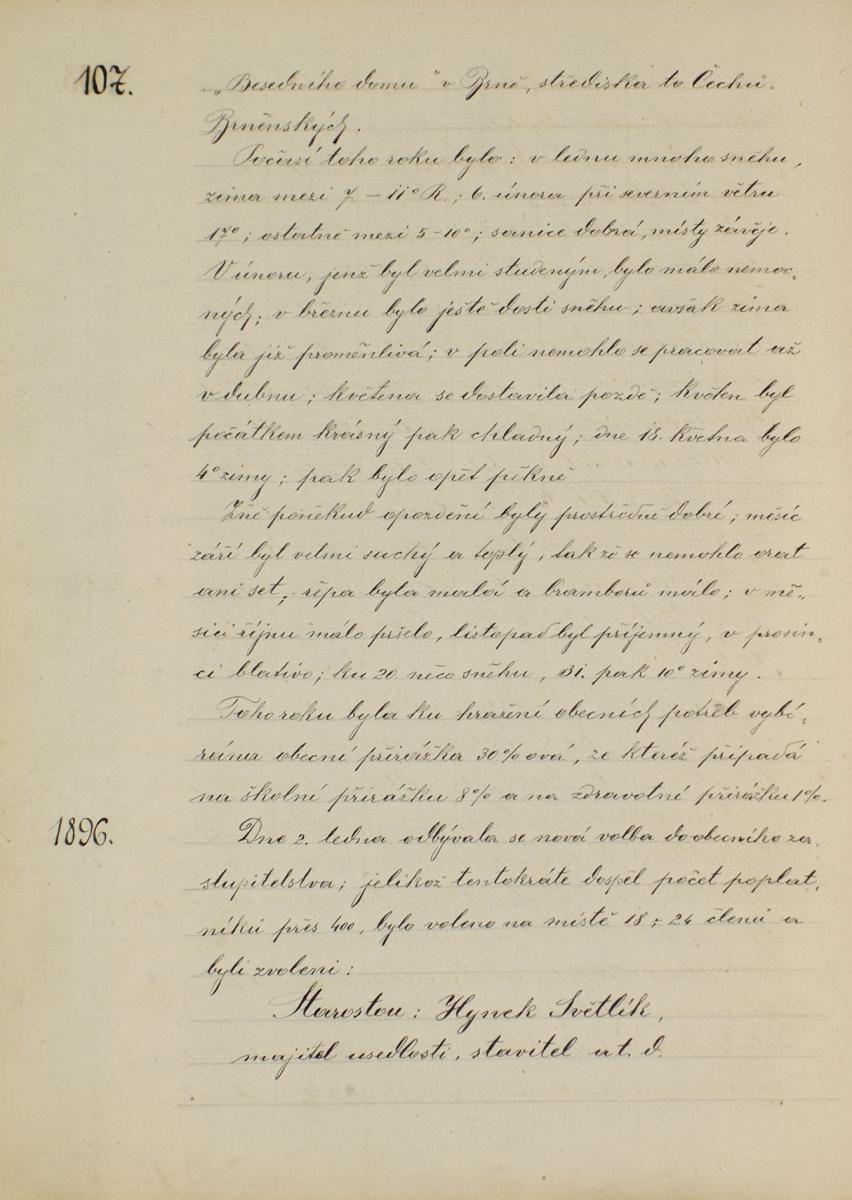 107.
„Besedního domu" v Brně, střediska to Čechů
Brněnských.
Počasí toho roku bylo: v lednu mnoho sněhu,
zima mezi 7 – 11° R.; 6. února při severním větru
17°; ostatně mezi 5–10°; sanice dobrá, místy závěje.
V únoru, jenž byl velmi studeným, bylo málo nemoc-
ných; v březnu bylo ještě dosti sněhu; avšak zima
byla již proměnlivá; v poli nemohlo se pracovat až
v dubnu; květena se dostavila pozdě; květen byl
počátkem krásný pak chladný; dne 18. května bylo
4° zimy; pak bylo opět pěkně
Žně poněkud opozdění byly prostředně dobré; měsíc
září byl velmi suchý a teplý, tak že se nemohlo orat
ani set; řěpa byla malá a bramborů málo; v mě-
sici říjnu málo pršelo, listopad byl příjemný, v prosin-
ci blativo; ku 20 něco sněhu, 31. pak 10° zimy.
Toho roku byla ku hražení obecních potřeb vybí-
rána obecní přirážka 30% ová, ze kteréž připadá
na školní přirážku 8% a na zdravotní přirážku 1%.
1896.
Dne 2. ledna odbývala se nová volba do obecního za-
stupitelstva; jelikož tentokráte dospěl počet poplat-
níků přes 400, bylo voleno na místě 18 ; 24 členů a
byli zvoleni:
Starostou: Hynek Světlík,
majitel usedlosti, stavitel a t. d.